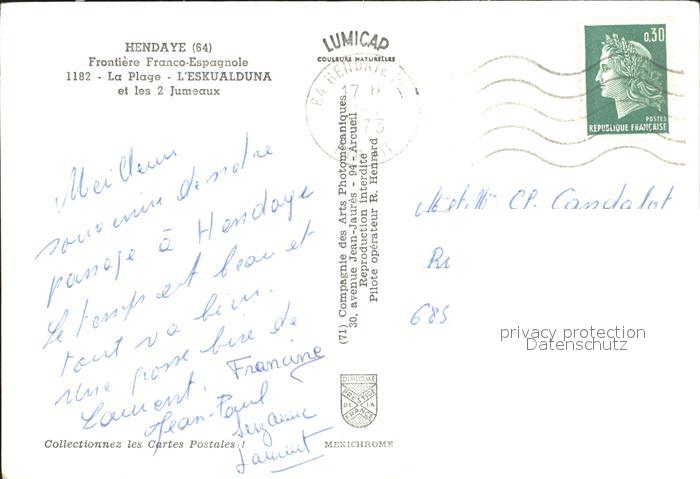 HENDAYE (64)
Frontière Franco-Espagnole
1182 - La Plage - L'ESKUALDUNA
et les 2 Jumeaux
LUMICAP
COULEURS NATURELLES
64 HENDAYE
17 H
73
0,30
POSTES
REPUBLIQUE FRANÇAISE
Meilleur
souvenir de notre
passage à Hendaye
Le temps est beau et
tout va bien.
Une grosse bise de
Laurent. Francine
Jean-Paul
Suzanne
Laurent
(71) Compagnie des Arts Photomécaniques
30, avenue Jean-Jaurès - 94 - Arcueil
Reproduction Interdite
Pilote opérateur R. Henrard
Met Mme Cl. Candalot
685
privacy protection
Datenschutz
DIPLOME
PRESTIGE
DE LA
FRANCE
Collectionnez les Cartes Postales !
MEXICHROME